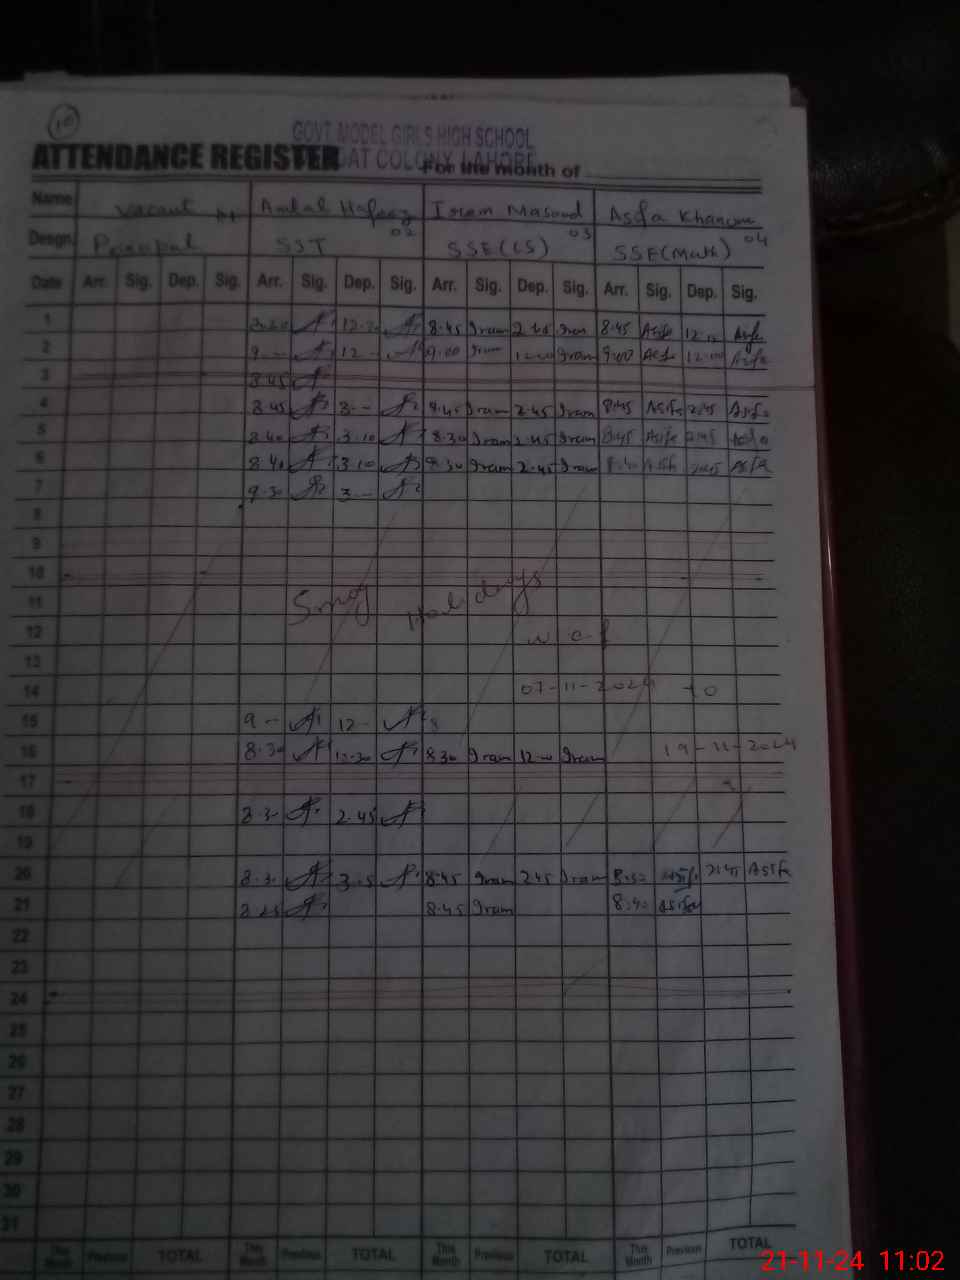 10
GOVT MODEL GIRLS HIGH SCHOOL
COLONY LAHORE
ATTENDANCE REGISTER For the month of
Name Vacant Hafeez Iram Masood Asfa Khanum
02 03 04
Desgn. Principal SST SSE(CS) SSE(Math)
Date Arr. Sig. Dep. Sig. Arr. Sig. Dep. Sig. Arr. Sig. Dep. Sig. Arr. Sig. Dep. Sig.
1 8.45 Iram 2.45 Iram 8.45 Asfa
2 9.00 Iram 12.00 Iram 9.00 Asfa 12.00 Asfa
3 8.45
4 8.45 3 -- 8.45 Iram 2.45 Iram 8.45 Asifa 2.45 Asifa
5 8.40 3.10 8.30 Iram 2.45 Iram 8.45 Asifa 2.45
6 8.40 3.10 8.30 Iram 2.45 Iram 8.40 2.45 Asfa
7 9.30 3 --
8
9
10
11 Smog Holidays
12 w e f
13
14 07-11-2024 to
15 9 -- 12 --
16 8.30 12.30 8.30 Iram 12.00 Iram 19-11-2024
17
18 8.30 2.45
19
20 8.30 3.15 8.45 Iram 2.45 Iram 8:50 Asifa 2:45 Asifa
21 8.45 8.45 Iram 8:40 Asifa
22
23
24
25
26
27
28
29
30
31
This Month Previous TOTAL This Month Previous TOTAL This Month Previous TOTAL This Month Previous TOTAL
21-11-24 11:02